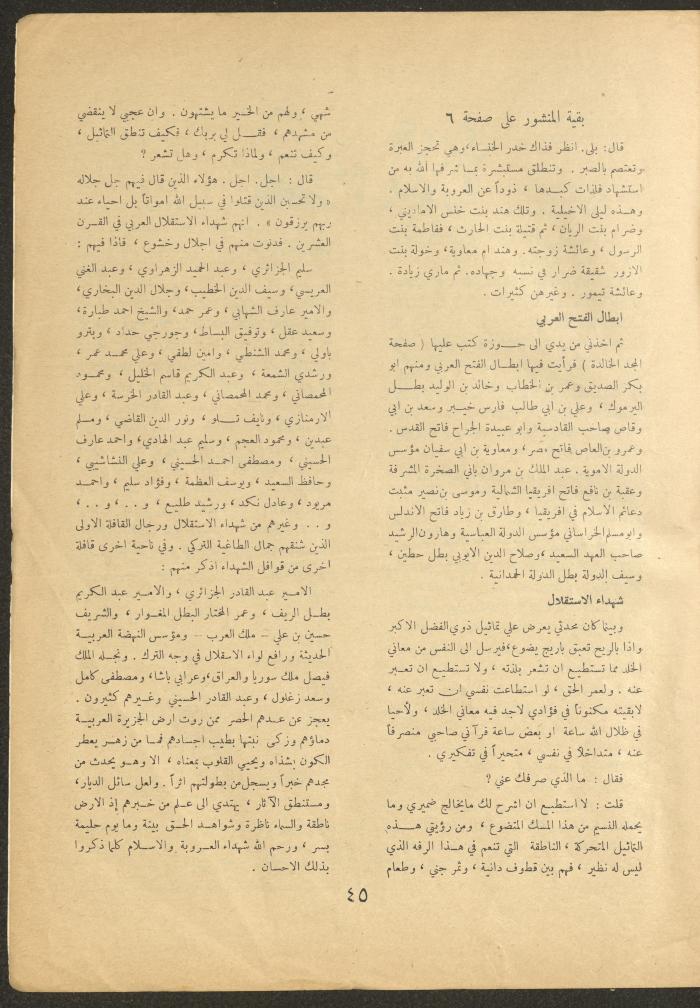 بقية المنشور على صفحة ٦
قال: بلى. انظر فذاك خدر الخنساء، وهي تحجز العبرة
وتعتصم بالصبر . وتنطلق مستبشرة بما شرفها الله به من
استشهاد فلذات كبدها ، ذوداً عن العروبة والاسلام .
وهذه ليلى الاخيلية . وتلك هند بنت خلس الاماديني ،
وضرام بنت الريان، ثم قتيلة بنت الحارث ، ففاطمة بنت
الرسول ، وعائشة زوجته. وهند ام معاوية، وخولة بنت
الازور شقيقة ضرار في نسبه وجهاده. ثم ماري زيادة .
وعائشة تيمور . وغيرهن كثيرات .
ابطال الفتح العربي
ثم اخذني من يدي الى حوزة كتب عليها ( صفحة
المجد الخالدة ) فرأيت فيها ابطال الفتح العربي ومنهم ابو
بكر الصديق وعمر بن الخطاب وخالد بن الوليد بطل
اليرموك ، وعلي بن ابي طالب فارس خيبر وسعد بن ابي
وقاص صاحب القادسية وابو عبيدة الجراح فاتح القدس .
وعمرو بن العاص فاتح مصر، ومعاوية بن ابي سفيان مؤسس
الدولة الاموية . عبد الملك بن مروان باني الصخرة المشرفة
وعقبة بن نافع فاتح افريقيا الشمالية وموسى بن نصير مثبت
دعائم الاسلام في افريقيا ، وطارق بن زياد فاتح الاندلس
وابو مسلم الخراساني مؤسس الدولة العباسية وهارون الرشيد
صاحب العهد السعيد ، وصلاح الدين الايوبي بطل حطين ،
وسيف الدولة بطل الدولة الحمدانية .
شهداء الاستقلال
وبينما كان محدثي يعرض علي تماثيل ذوي الفضل الاكبر
واذا بالريح تعبق باريج يضوع، فيرسل الى النفس من معاني
الخلد مما تستطيع ان تشعر بلذته ، ولا تستطيع ان تعبر
عنه . ولعمر الحق ، لو استطاعت نفسي ان تعبر عنه ،
لابقيته مكنوناً في فؤادي لاجد فيه معاني الخلد ، ولأحيا
في ظلال الله ساعة او بعض ساعة فرآني صاحبي منصرفاً
عنه ، متداخلاً في نفسي ، متحيراً في تفكيري .
فقال : ما الذي صرفك عني ؟
قلت : لا استطيع ان اشرح لك ما يخالج ضميري وما
يحمله النسيم من هذا المسك المتضوع ، ومن رؤيتي هذه
التماثيل المتحركة ، الناطقة التي تنعم في هذا الرفه الذي
ليس له نظير ، فهم بين قطوف دانية ، وثمر جني ، وطعام
شهي ، ولهم من الخير ما يشتهون . وان عجبي لا ينقضي
من مشهدهم ، فقل لي بربك ، فكيف تنطق التماثيل ،
وكيف تنعم ، ولماذا تكرم ، وهل تشعر ؟
قال : اجل. اجل . هؤلاء الذين قال فيهم جل جلاله
« ولا تحسبن الذين قتلوا في سبيل الله امواتاً بل احياء عند
ربهم يرزقون » . انهم شهداء الاستقلال العربي في القرن
العشرين . فدنوت منهم في اجلال وخشوع ، فاذا فيهم :
سليم الجزائري ، وعبد الحميد الزهراوي ، وعبد الغني
العريسي، وسيف الدين الخطيب، وجلال الدين البخاري،
والامير عارف الشهابي ، وعمر حمد، والشيخ احمد طبارة،
وسعيد عقل ، وتوفيق البساط، وجورجي حداد ، وبترو
باولي ، ومحمد الشنطي ، وامين لطفي ، وعلي محمد عمر ،
ورشدي الشمعة ، وعبد الكريم قاسم الخليل ، ومحمود
المحمصاني ، ومحمد المحمصاني ، وعبد القادر الخرسة ، وعلي
الارمنازي ، ونايف تللو ، ونور الدين القاضي ، ومسلم
عبدين ، ومحمود العجم ، وسليم عبد الهادي، واحمد عارف
الحسيني ، ومصطفى احمد الحسيني ، وعلي النشاشيبي ،
وحافظ السعيد ، ويوسف العظمة ، وفؤاد سليم ، واحمد
مريود ، وعادل نكد ، ورشيد طليع ، و . . ، و . . ،
و . . وغيرهم من شهداء الاستقلال ورجال القافلة الاولى
الذين شنقهم جمال الطاغية التركي . وفي ناحية اخرى قافلة
اخرى من قوافل الشهداء اذكر منهم :
الامير عبد القادر الجزائري ، والامير عبد الكريم
بطل الريف ، وعمر المختار البطل المغوار ، والشريف
حسين بن علي – ملك العرب – ومؤسس النهضة العربية
الحديثة ورافع لواء الاسقلال في وجه الترك . ونجله الملك
فيصل ملك سوريا والعراق، وعرابي باشا، ومصطفى كامل
وسعد زغلول ، وعبد القادر الحسيني وغيرهم كثيرون .
يعجز عن عدهم الحصر ممن روت ارض الجزيرة العربية
دماؤهم وزكى نبتها بطيب اجسادهم فما من زهر يعطر
الكون بشذاه ويحيي القلوب بمعناه ، الا وهو يحدث من
مجدهم خبراً ويسجل من بطولتهم اثراً . ولعل سائل الديار،
ومستنطق الآثار ، يهتدي الى علم من خبرهم إذ الارض
ناطقة والسماء ناظرة وشواهد الحق بينة وما يوم حليمة
بسر ، ورحم الله شهداء العروبة والاسلام كلما ذكروا
بذلك الاحسان .
٤٥